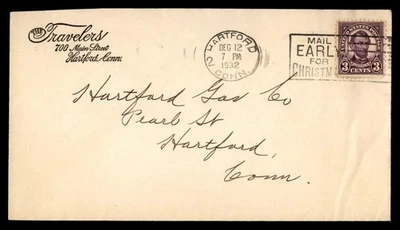 The Travelers
700 Main Street
Hartford, Conn.
HARTFORD
DEC 12
7 PM
1932
CONN.
MAIL
EARLY
FOR
CHRISTMAS
UNITED STATES POSTAGE
3 CENTS 3
Hartford Gas Co
Pearl St
Hartford,
Conn.